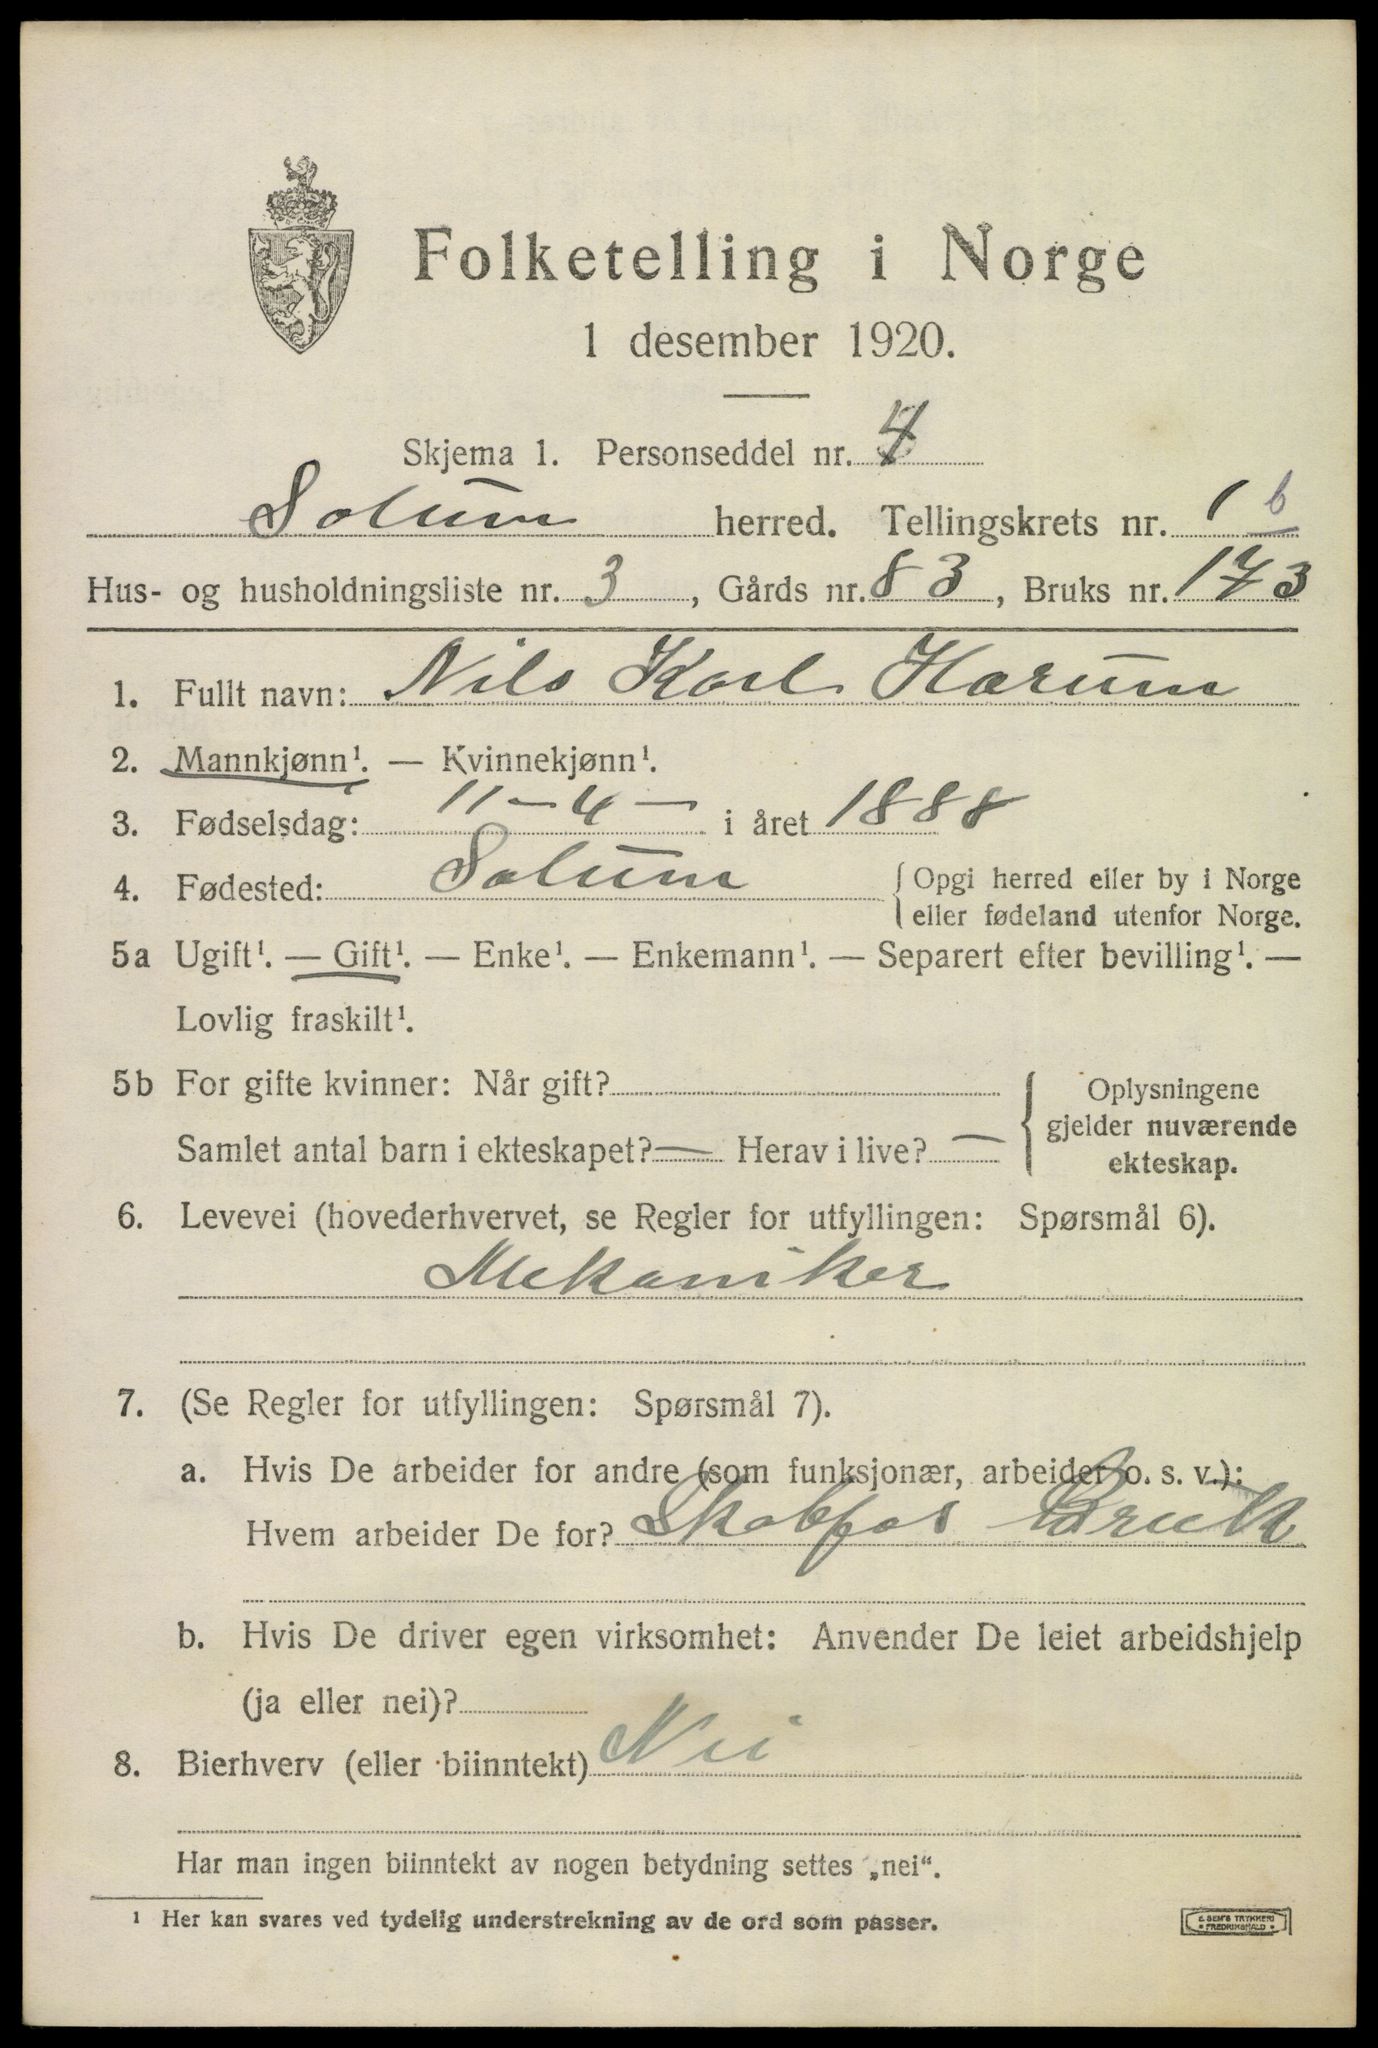 Folketelling i Norge
1 desember 1920.
Skjema 1. Personseddel nr. 4
Solum herred. Tellingskrets nr. 1 b
Hus- og husholdningsliste nr. 3, Gårds nr. 83, Bruks nr. 173
1. Fullt navn: Nils Karl Hærum
2. Mannkjønn¹. — Kvinnekjønn¹.
3. Fødselsdag: 11 - 4 - i året 1888
4. Fødested: Solum { Opgi herred eller by i Norge
eller fødeland utenfor Norge.
5a Ugift¹. — Gift¹. — Enke¹. — Enkemann¹. — Separert efter bevilling¹. —
Lovlig fraskilt¹.
5b For gifte kvinner: Når gift? { Oplysningene
gjelder nuværende
ekteskap.
Samlet antal barn i ekteskapet? — Herav i live? —
6. Levevei (hovederhvervet, se Regler for utfyllingen: Spørsmål 6).
Mekaniker
7. (Se Regler for utfyllingen: Spørsmål 7).
a. Hvis De arbeider for andre (som funksjonær, arbeider o. s. v.):
Hvem arbeider De for? Skotfos Bruk
b. Hvis De driver egen virksomhet: Anvender De leiet arbeidshjelp
(ja eller nei)?
8. Bierhverv (eller biinntekt) Nei
Har man ingen biinntekt av nogen betydning settes „nei“.
¹ Her kan svares ved tydelig understrekning av de ord som passer.
E SEM'S TRYKKERI
FREDRIKSHALD